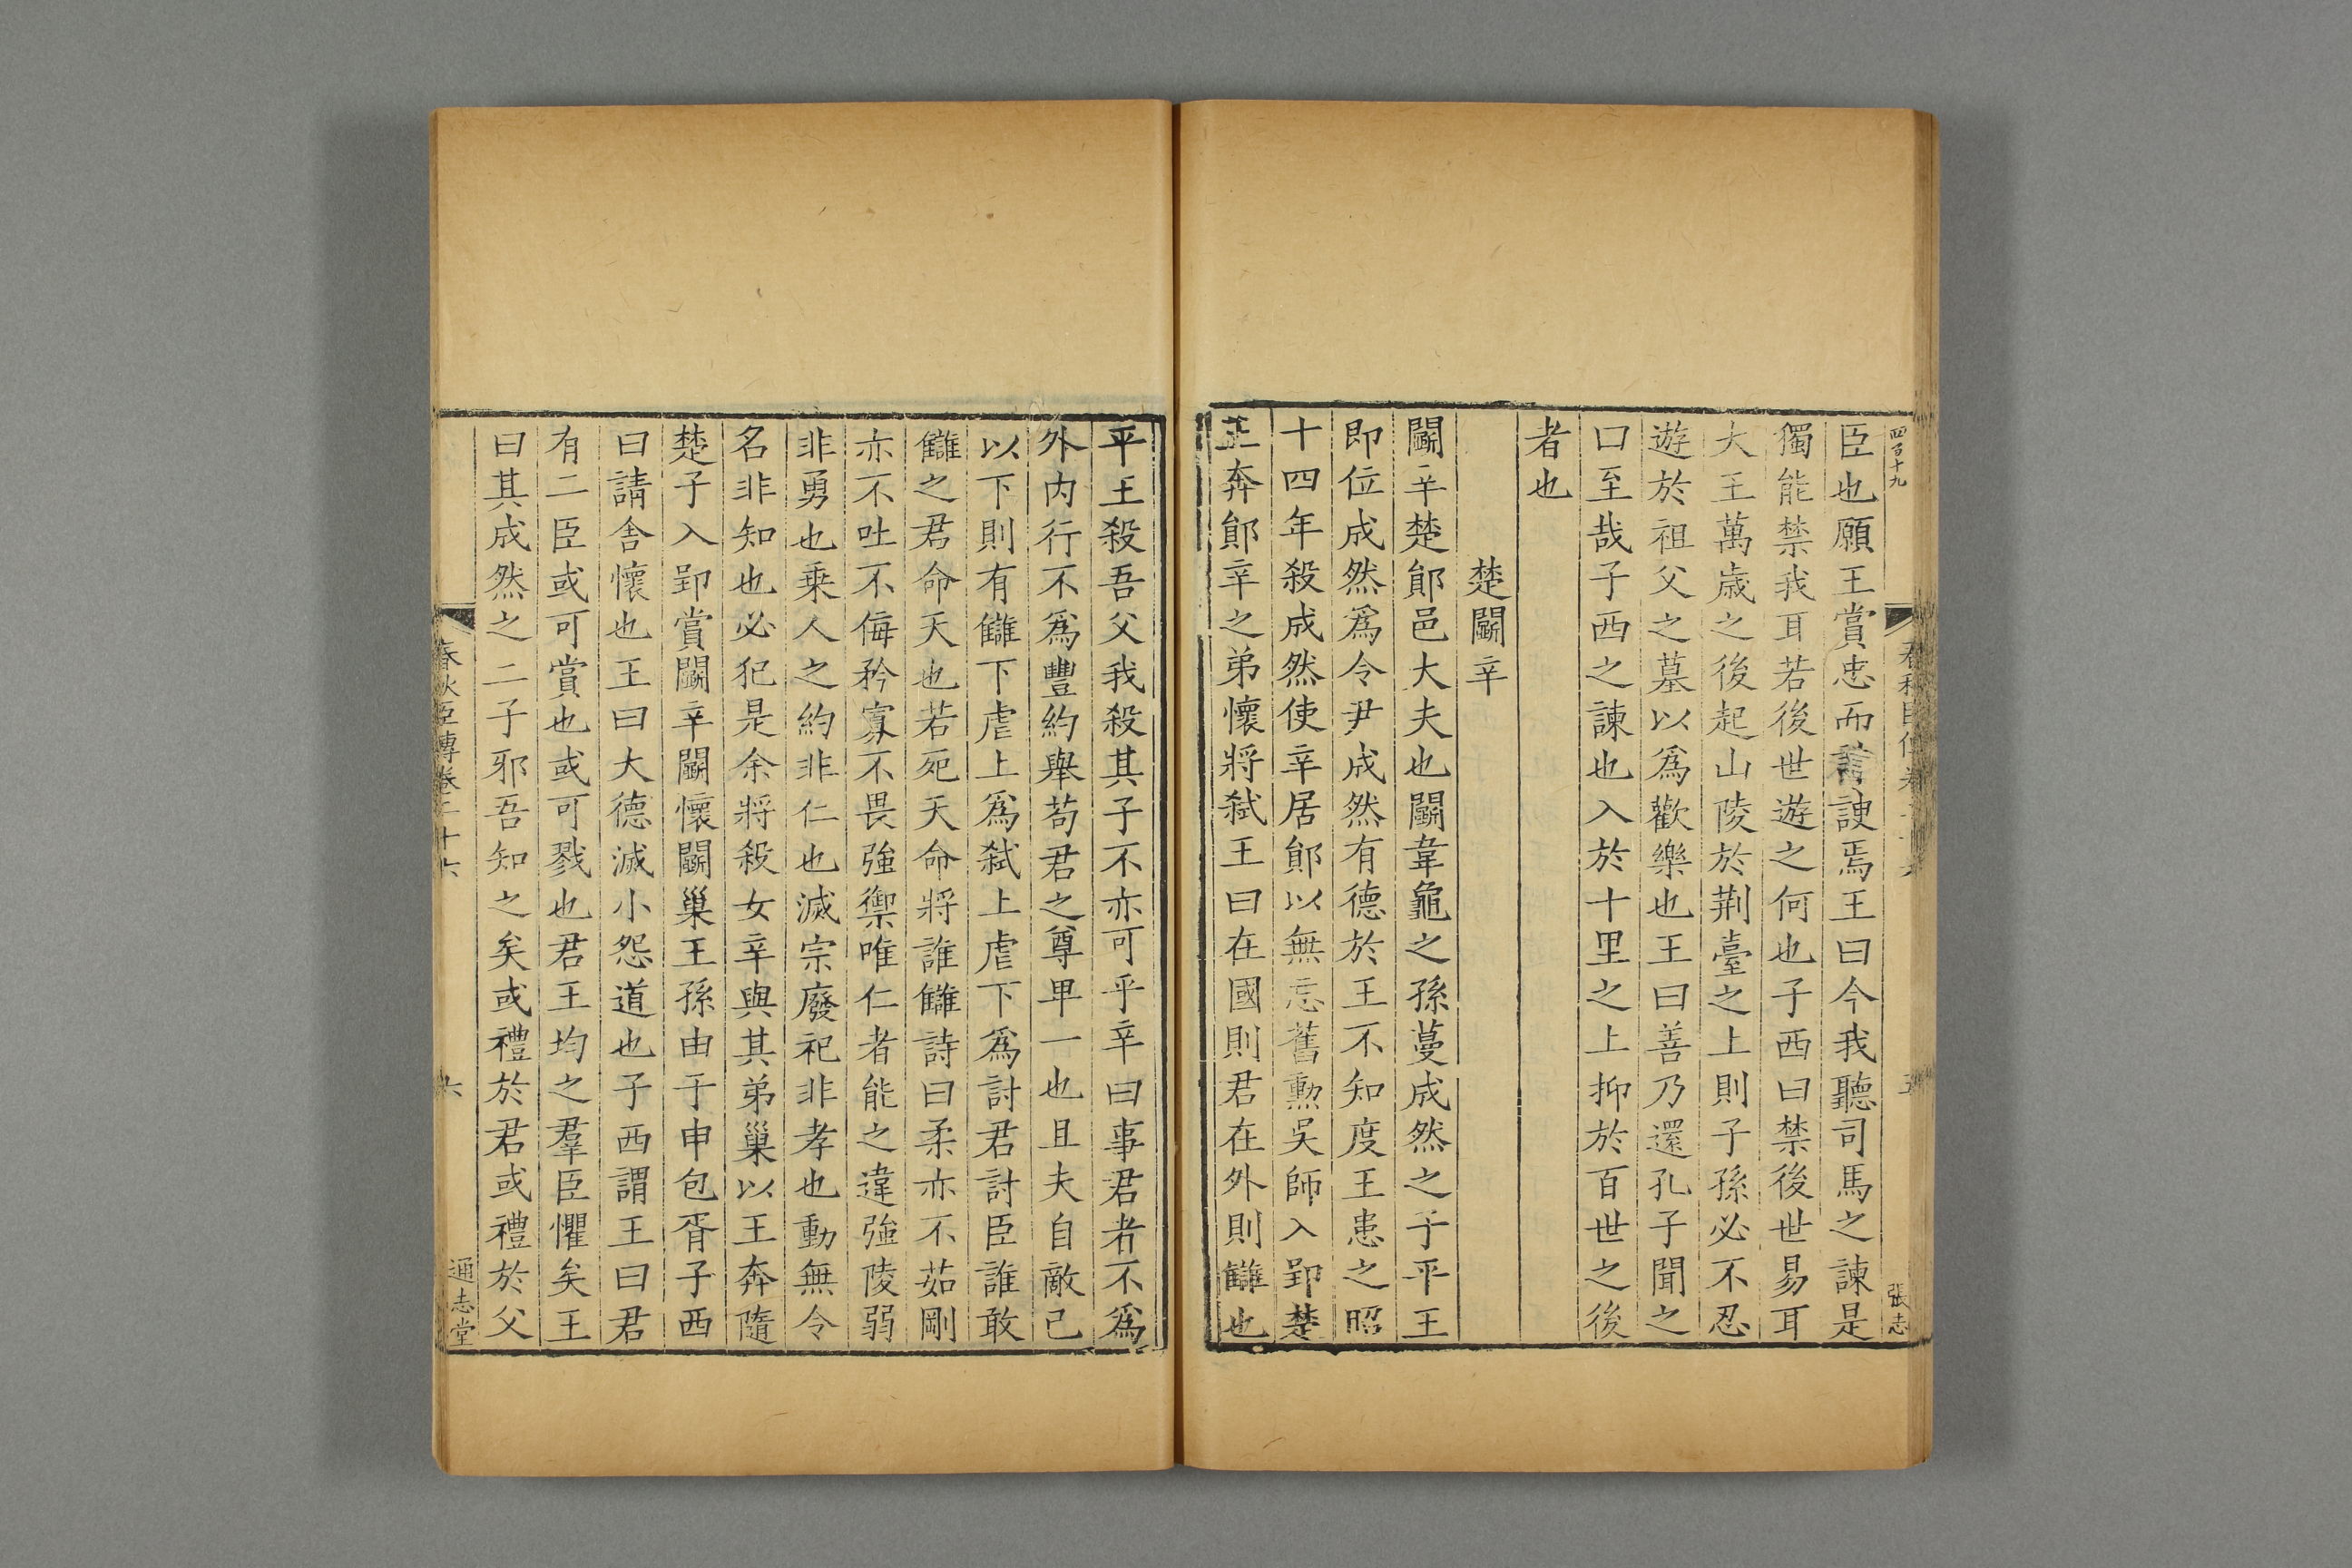 四百十九
張志
臣也願王賞忠而誅諛焉王曰今我聽司馬之諫是
獨能禁我耳若後世遊之何也子西曰禁後世易耳
大王萬歲之後起山陵於荆臺之上則子孫必不忍
遊於祖父之墓以爲歡樂也王曰善乃還孔子聞之
曰至哉子西之諫也入於十里之上抑於百世之後
者也
楚鬭辛
鬭辛楚鄖邑大夫也鬭韋龜之孫蔓成然之子平王
即位成然爲令尹成然有德於王不知度王患之昭
十四年殺成然使辛居鄖以無忘舊勳吳師入郢楚
王奔鄖辛之弟懷將弑王曰在國則君在外則讎也
平王殺吾父我殺其子不亦可乎辛曰事君者不爲
外内行不爲豐約舉苟君之尊卑一也且夫自敵己
以下則有讎下虐上爲弑上虐下爲討君討臣誰敢
讎之君命天也若死天命將誰讎詩曰柔亦不茹剛
亦不吐不侮矜寡不畏強禦唯仁者能之違強陵弱
非勇也乗人之約非仁也滅宗廢祀非孝也動無令
名非知也必犯是余將殺女辛與其弟巢以王奔隨
楚子入郢賞鬭辛鬭懷鬭巢王孫由于申包胥子西
曰請舍懷也王曰大德滅小怨道也子西謂王曰君
有二臣或可賞也或可戮也君王均之羣臣懼矣王
曰其成然之二子邪吾知之矣或禮於君或禮於父
春秋臣傳卷二十六
六
通志堂